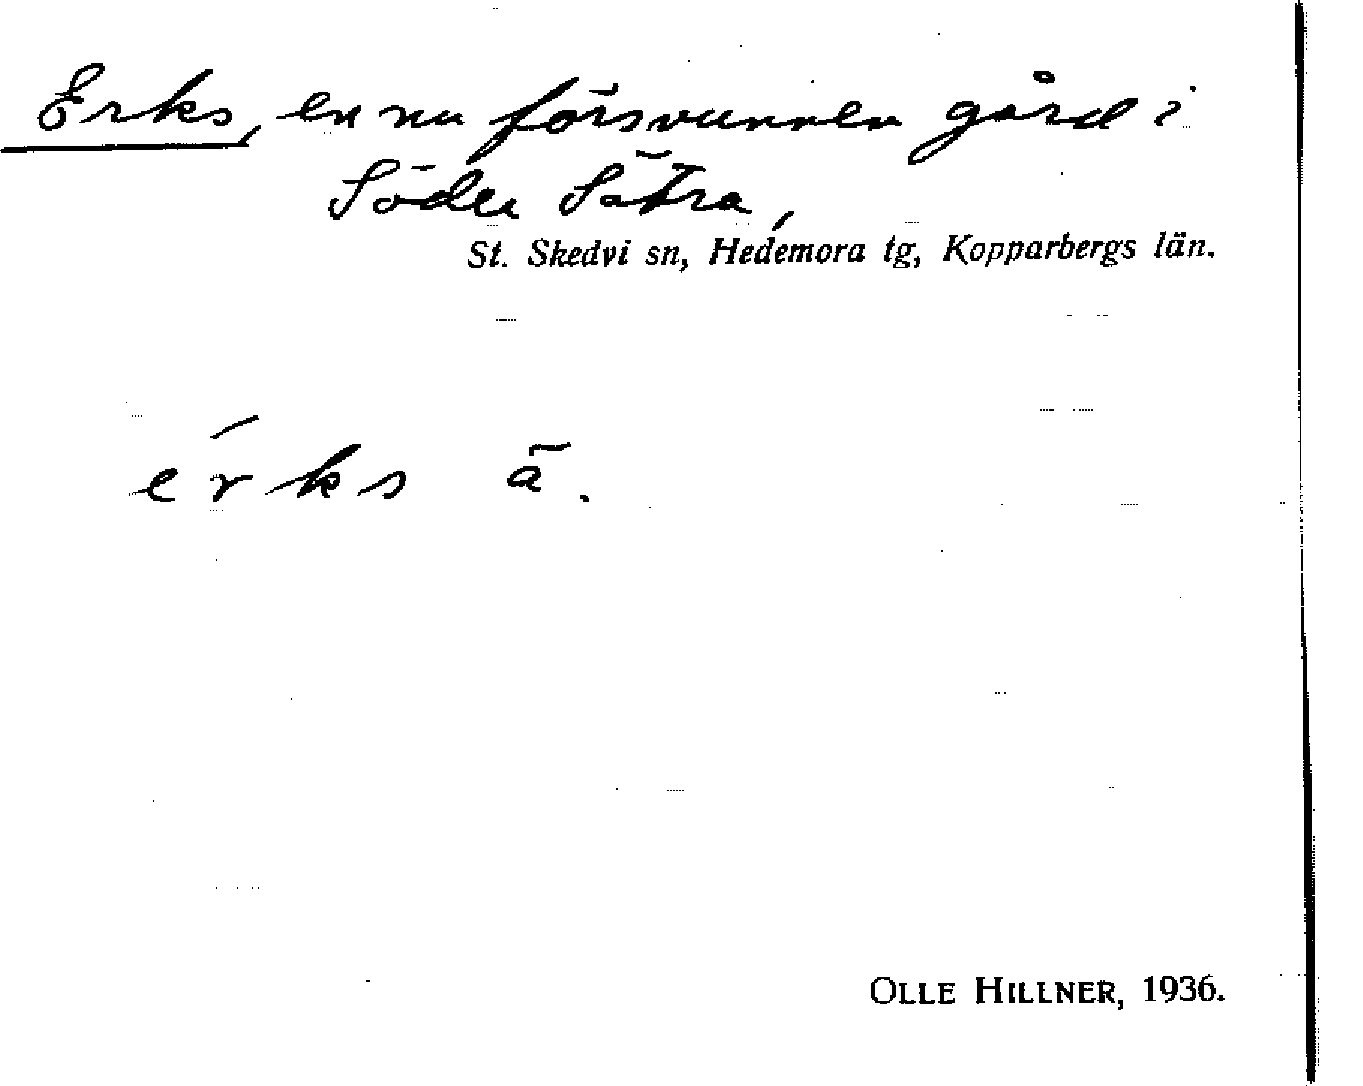 Erks, en nu försvunnen gård i
Söder Sätra,
St. Skedvi sn, Hedemora tg, Kopparbergs län.
érks ä.
OLLE HILLNER, 1936.